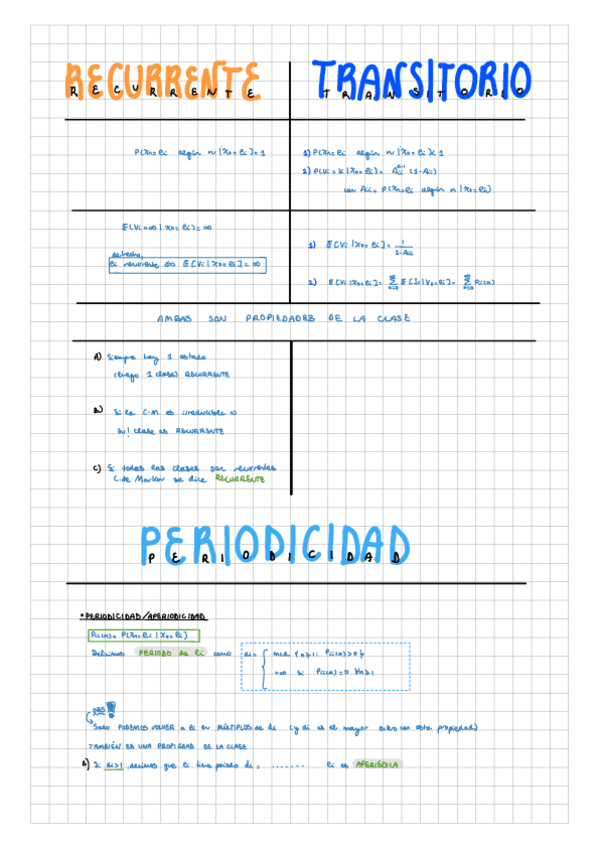 RECURRENTE TRANSITORIO
RECURRENTE TRANSITORIO
P(Xn=ei algún n | X0=ei)=1
1) P(Xn=ei algún n | X0=ei)<1
2) P(Vi=K | X0=ei)= Aii^K-1 (1-Aii)
con Aii= P(Xn=ei algún n | X0=ei)
E(Vi=∞ | X0=ei)=∞
de hecho,
ei recurrente ⇔ E[Vi | X0=ei]=∞
1) E[Vi | X0=ei]= 1/(1-Aii)
AMBAS SON PROPIEDADES DE LA CLASE
A) Siempre hay 1 estado
(luego 1 clase) RECURRENTE
B) Si la C.M es irreducible ⇒
su! clase es RECURRENTE
C) Si todas las clases son recurrentes
C. de Markov se dice RECURRENTE
PERIODICIDAD
PERIODICIDAD
• PERIODICIDAD/APERIODICIDAD
Pii(n)= P(Xn=ei | X0=ei)
Definimos PERIODO de ei como di= { mcd {n≥1: Pii(n)>0}
+∞ si Pii(n)=0 ∀n≥1
OBS!
Solo PODEMOS VOLVER a ei en MÚLTIPLOS de di (y di es el mayor entero con esta propiedad)
TAMBIÉN ES UNA PROPIEDAD DE LA CLASE
Si di>1, decimos que ei tiene periodo di, ....... ei es APERIÓDICA